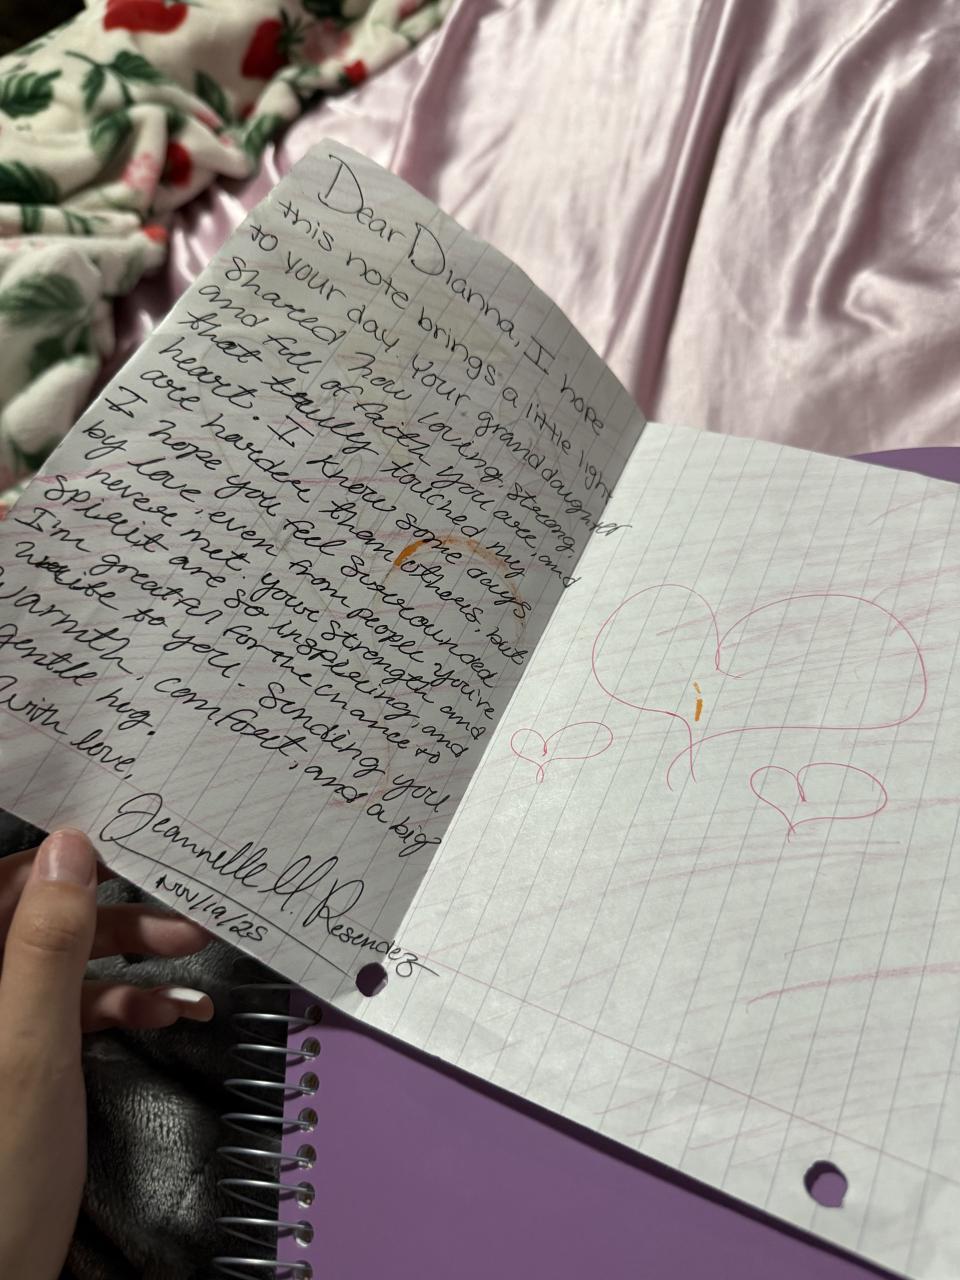 Dear Dianna, I hope
this note brings a little light
to your day. Your granddaughter
shared how loving, strong,
and full of faith you are, and
that trully touched my
heart. I know some days
are harder them others, but
I hope you feel surrounded
by love, even from people you've
never met. your strength and
spirit are so inspiering, and
I'm greatful for the chance to
write to you. Sending you
warmth, comfort, and a big
gentle hug.
With love,
Jeannelle M. Resendez
Nov/19/25